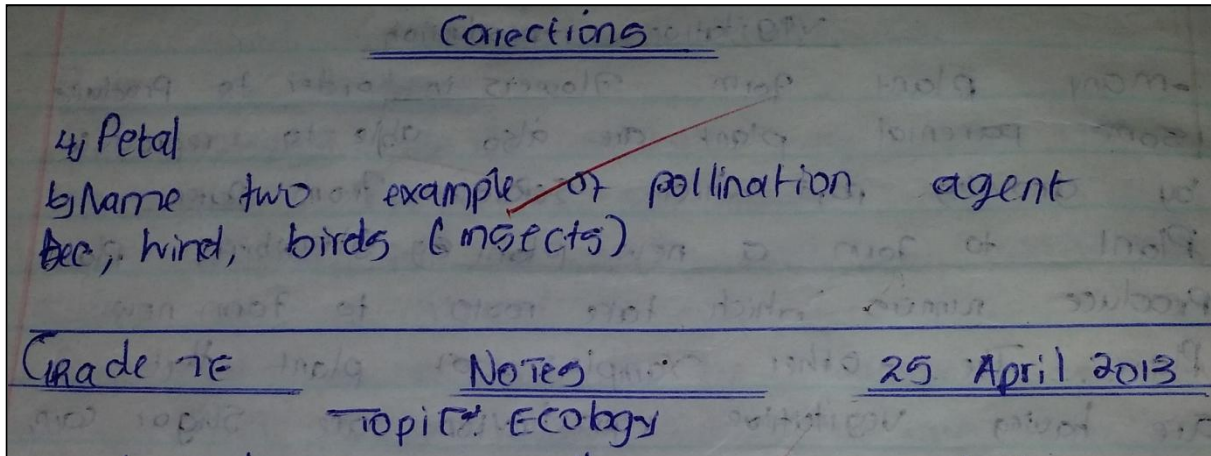 Corrections
4) Petal
b) Name two example of pollination. agent
Bee, wind, birds (insects)
Grade 7E Notes 25 April 2013
Topic: Ecology